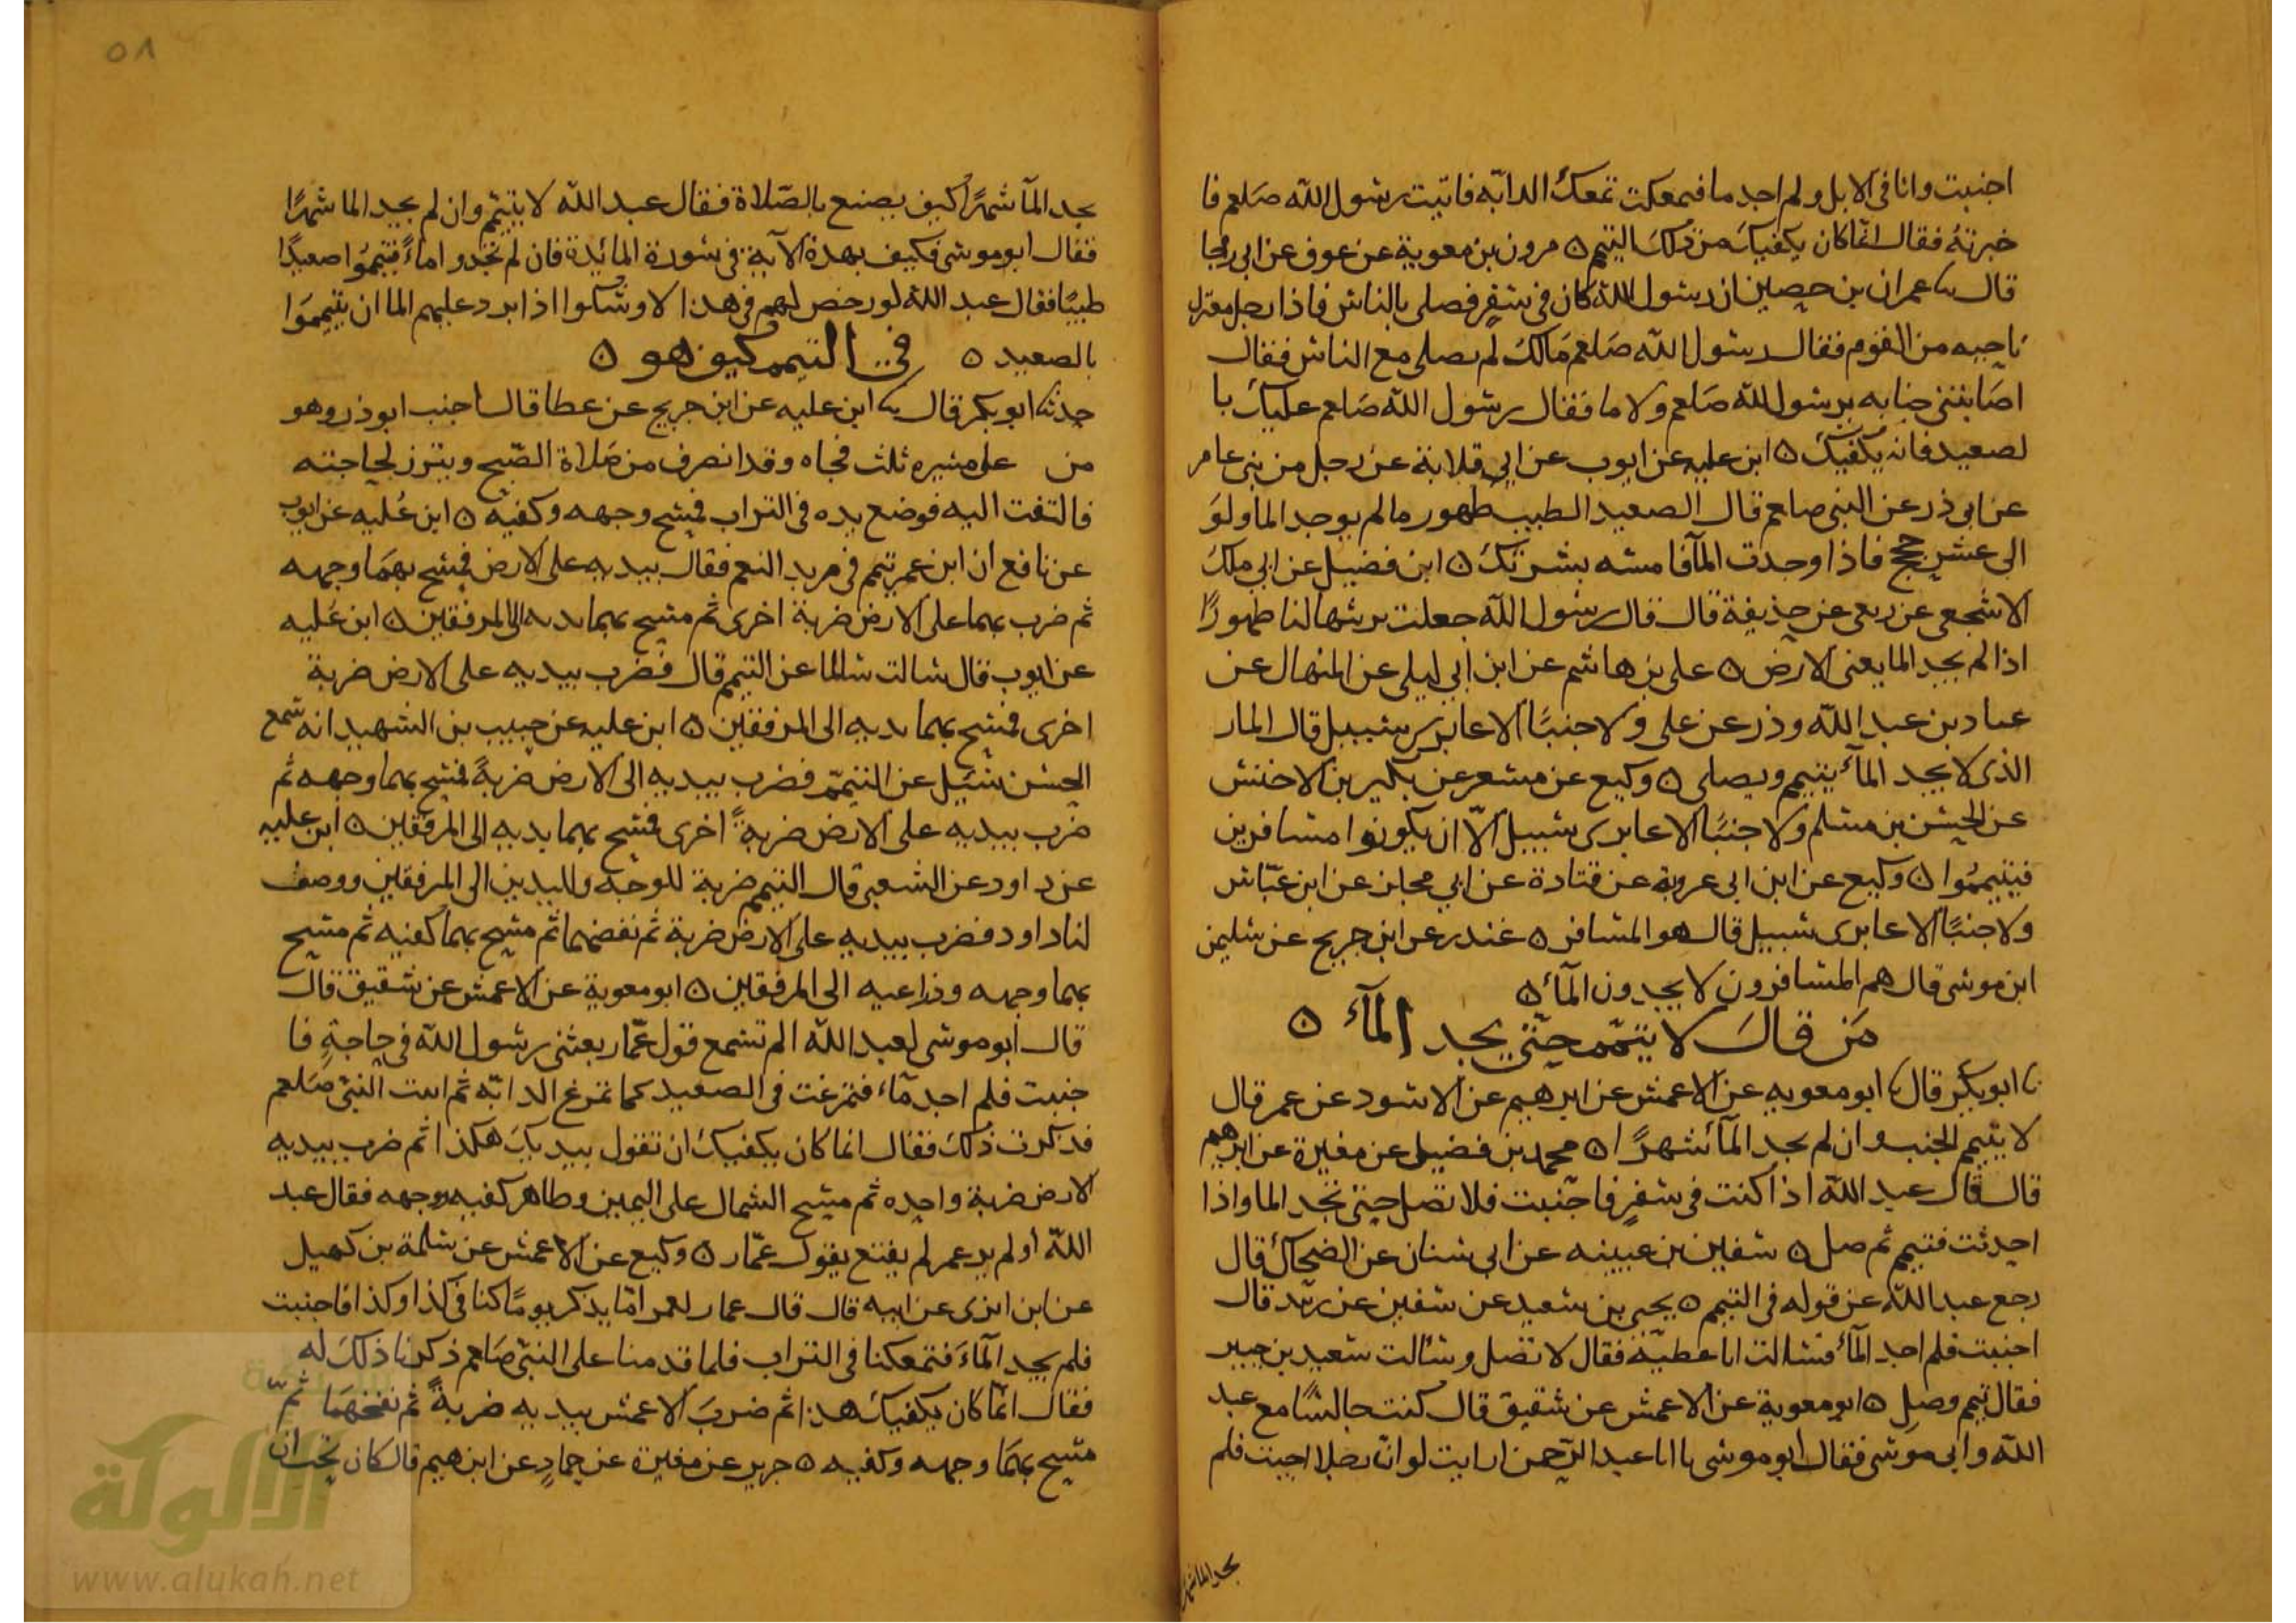 اجنبت وانا في الابل ولم اجد ما فتمعكت تمعك الدابّه فاتيت رسول الله صلعم فا
خبرته فقال انما كان يكفيك من ذلك التيمم ٥ مرون بن معوية عن عوف عن ابي رجا
قال ثنا عمران بن حصين ان رسول الله كان في سفر فصلى بالناس فاذا رجل معتزل
ناحيه من القوم فقال رسول الله صلعم مالك لم تصلى مع الناس فقال
اصابتني جنابه يرسول لله صلعم ولا ما فقال رسول الله صلعم عليك با
لصعيد فانه يكفيك ٥ ابن عليه عن ايوب عن ابي قلابة عن رجل من بنى عامر
عن ابى ذر عن النبى صلعم قال الصعيد الطيب طهور ما لم يوجد الما ولو
الى عشر حجج فاذا وجدت المآ فامسه بشرتك ٥ ابن فضيل عن ابي ملك
الاشجعى عن ربعى عن حذيفة قال قال رسول الله جعلت تربتها لنا طهورًا
اذا لم يجد الما يعنى الارض ٥ على بن هاشم عن ابن ابي ليلى عن المنهال عن
عباد بن عبد الله وذر عن على ولا جنبًا الا عابرى سبيل قال المار
الذى لا يجد المآ يتيمم ويصلى ٥ وكيع عن مسعر عن بكير بن الاخنس
عن الحسن بن مسلم ولا جنبًا الا عابرى سبيل الّا ان يكونوا مسافرين
فيتيمموا ٥ وكيع عن ابن ابى عروبة عن قتادة عن ابي مجلز عن ابن عبّاس
ولا جنبًا الا عابرى سبيل قال هو المسافر ٥ غندر عن ابن جريج عن سليمن
ابن موسى قال هم المسافرون لا يجدون المآ ٥
مَن قال لا يتيمم حتى يجد المآء ٥
ثنا ابو بكر قال ثنا ابو معويه عن الاعمش عن ابرهيم عن الاسود عن عمر قال
لا يتيمم الجنب وان لم يجد المآ شهرًا ٥ محمد بن فضيل عن مغيرة عن ابرهيم
قال قال عبد الله اذا كنت في سفرٍ فاجنبت فلا تصل حتى تجد الما واذا
احدثت فتيمم ثم صل ٥ سفين بن عيينه عن ابى سنان عن الضحاك قال
رجع عبد الله عن قوله في التيمم ٥ يحيى بن سعيد عن سفين عن زيد قال
اجنبت فلم اجد المآ فسالت ابا عطيّة فقال لا تصل وسألت سعيد بن جبير
فقال تيمم وصل ٥ ابو معوية عن الاعمش عن شقيق قال كنت جالسًا مع عبد
الله وابى موسى فقال ابو موسى يا ابا عبد الرّحمن ارايت لو ان رجلا اجنب فلم
يجد الما شهرًا
٥٨
يجد المآ شهرًا كيف يصنع بالصّلاة فقال عبد الله لا يتيمّم وان لم يجد الما شهرًا
فقال ابو موسى فكيف بهذه الآية في سورة المائدة فان لم تجدوا ماءً فتيمّموا صعيدًا
طيبًا فقال عبد الله لو رخص لهم في هذا لاوشكوا اذا برد عليهم الما ان يتيمموا
بالصعيد ٥ في التيمم كيف هو ٥
حدثنا ابو بكر قال ثنا ابن عليه عن ابن جريج عن عطا قال اجنب ابو ذر وهو
من على مسيره ثلث فجاه وقد انصرف من صلاة الصّبح وبتزز لحاجته
فالتفت اليه فوضع يده في التراب فمسح وجهه وكفيه ٥ ابن عُليه عن ايوب
عن نافع ان ابن عمر تيمم في مربد النعم فقال بيديه على الارض فمسح بهمَا وجهه
ثم ضرب بهما على الارض ضربة اخرى ثم مسح بهما يديه الى المرفقين ٥ ابن عُليه
عن ايوب قال سالت سالمًا عن التيمم قال فضرب بيديه على الارض ضربة
اخرى فمسح بهما يديه الى المرفقين ٥ ابن عليه عن حبيب بن الشهيد انه سمع
الحسن سُئيل عن التيمّم فضرب بيديه الى الارض ضربةً فمسح بهما وجهه ثم
ضرب بيديه على الارض ضربةً اخرى فمسح بهما يديه الى المرفقين ٥ ابن عليه
عن داود عن الشعبي قال التيمم ضربة للوجه واليدين الى المرفقين ووصف
لنا داود فضرب بيديه على الارض ضربة ثم نفضهما ثم مسح بهما كفيه ثم مسح
بهما وجهه وذراعيه الى المرفقين ٥ ابو معوية عن الاعمش عن شقيق قال
قال ابو موسى لعبد الله الم تسمع قول عمّار بعثنى رسول الله في حاجةٍ فا
جنبت فلم اجد مآء فتمرغت في الصعيد كما تمرغ الدابّه ثم اتيت النبي صلعم
فذكرت ذلك فقال انما كان يكفيك ان تقول بيديك هكذا ثم ضرب بيديه
الارض ضربة واحده ثم مسح الشمال على اليمين وظاهر كفيه ووجهه فقال عبد
الله أولم ير عمر لم يقنع بقول عمّار ٥ وكيع عن الاعمش عن سلمة بن كهيل
عن ابن ابزى عن ابيه قال قال عمار لعمر امّا يذكر يومًا كنا في كذا وكذا فاجنبت
فلم يجد المآءَ فتمعكنا في التراب فلما قدمنا على النبي صلعم ذكرنا ذلك له
فقال انّما كان يكفيك هذا ثم ضربَ الاعمش بيديه ضربةً ثم نفخهمَا ثمّ
مسح بهمَا وجهه وكفيه ٥ جرير عن مغيرة عن حمادٍ عن ابرهيم قال كان يحب ان
الألوكة
www.alukah.net